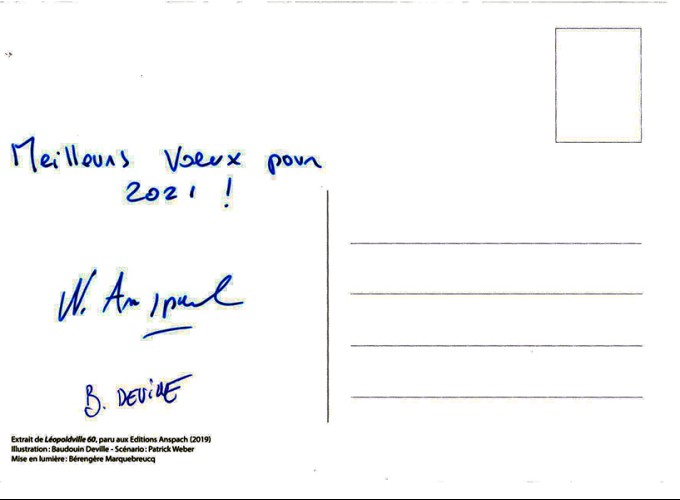 Meilleurs Voeux pour
2021 !
N. Anspach
B. DEVILLE
Extrait de Léopoldville 60, paru aux Editions Anspach (2019)
Illustration : Baudouin Deville - Scénario : Patrick Weber
Mise en lumière : Bérengère Marquebreucq